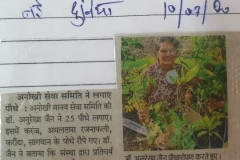 नई दुनिया 10/07/20
अनोखी सेवा समिति ने लगाए
पौधे : अनोखी मानव सेवा समिति की
डॉ. अनुरेखा जैन ने 25 पौधे लगाए।
इसमें करंज, अमलतास रजनाफली,
करौंदा, सागवान के पौधे रोपे गए।
डॉ. जैन ने बताया कि संस्था द्वारा प्रतिवर्ष
डॉ. अनुरेखा जैन पौधारोपण करते हुए।